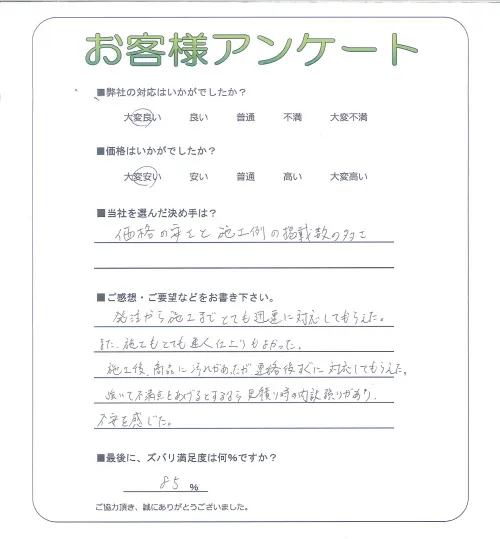 お客様アンケート
■弊社の対応はいかがでしたか？
大変良い 良い 普通 不満 大変不満
■価格はいかがでしたか？
大変安い 安い 普通 高い 大変高い
■当社を選んだ決め手は？
価格の安さと施工例の掲載数の多さ
■ご感想・ご要望などをお書き下さい。
発注から施工までとても迅速に対応してもらえた。
また、施工もとても 仕上りもよかった。
施工後、商品に汚れがあったが連絡後すぐに対応してもらえた。
強いて不満点をあげるとするなら見積り時の内訳誤りがあり、
不安を感じた。
■最後に、ズバリ満足度は何%ですか？
85 %
ご協力頂き、誠にありがとうございました。